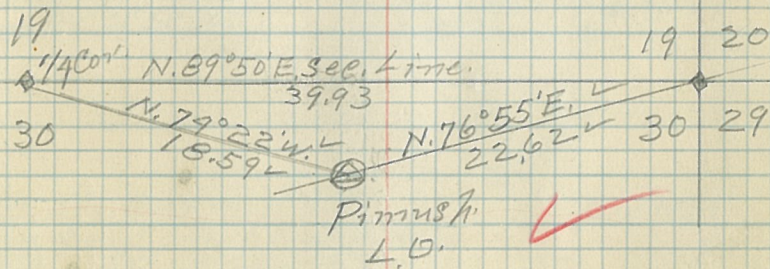 19
1/4 Cor.
N.89°50'E. Sec. Line.
39.93
19 20
30
N.74°22'W. ✓
18.59 ✓
N.76°55'E. ✓
22.62 ✓
30 29
Pimush.
L.O.